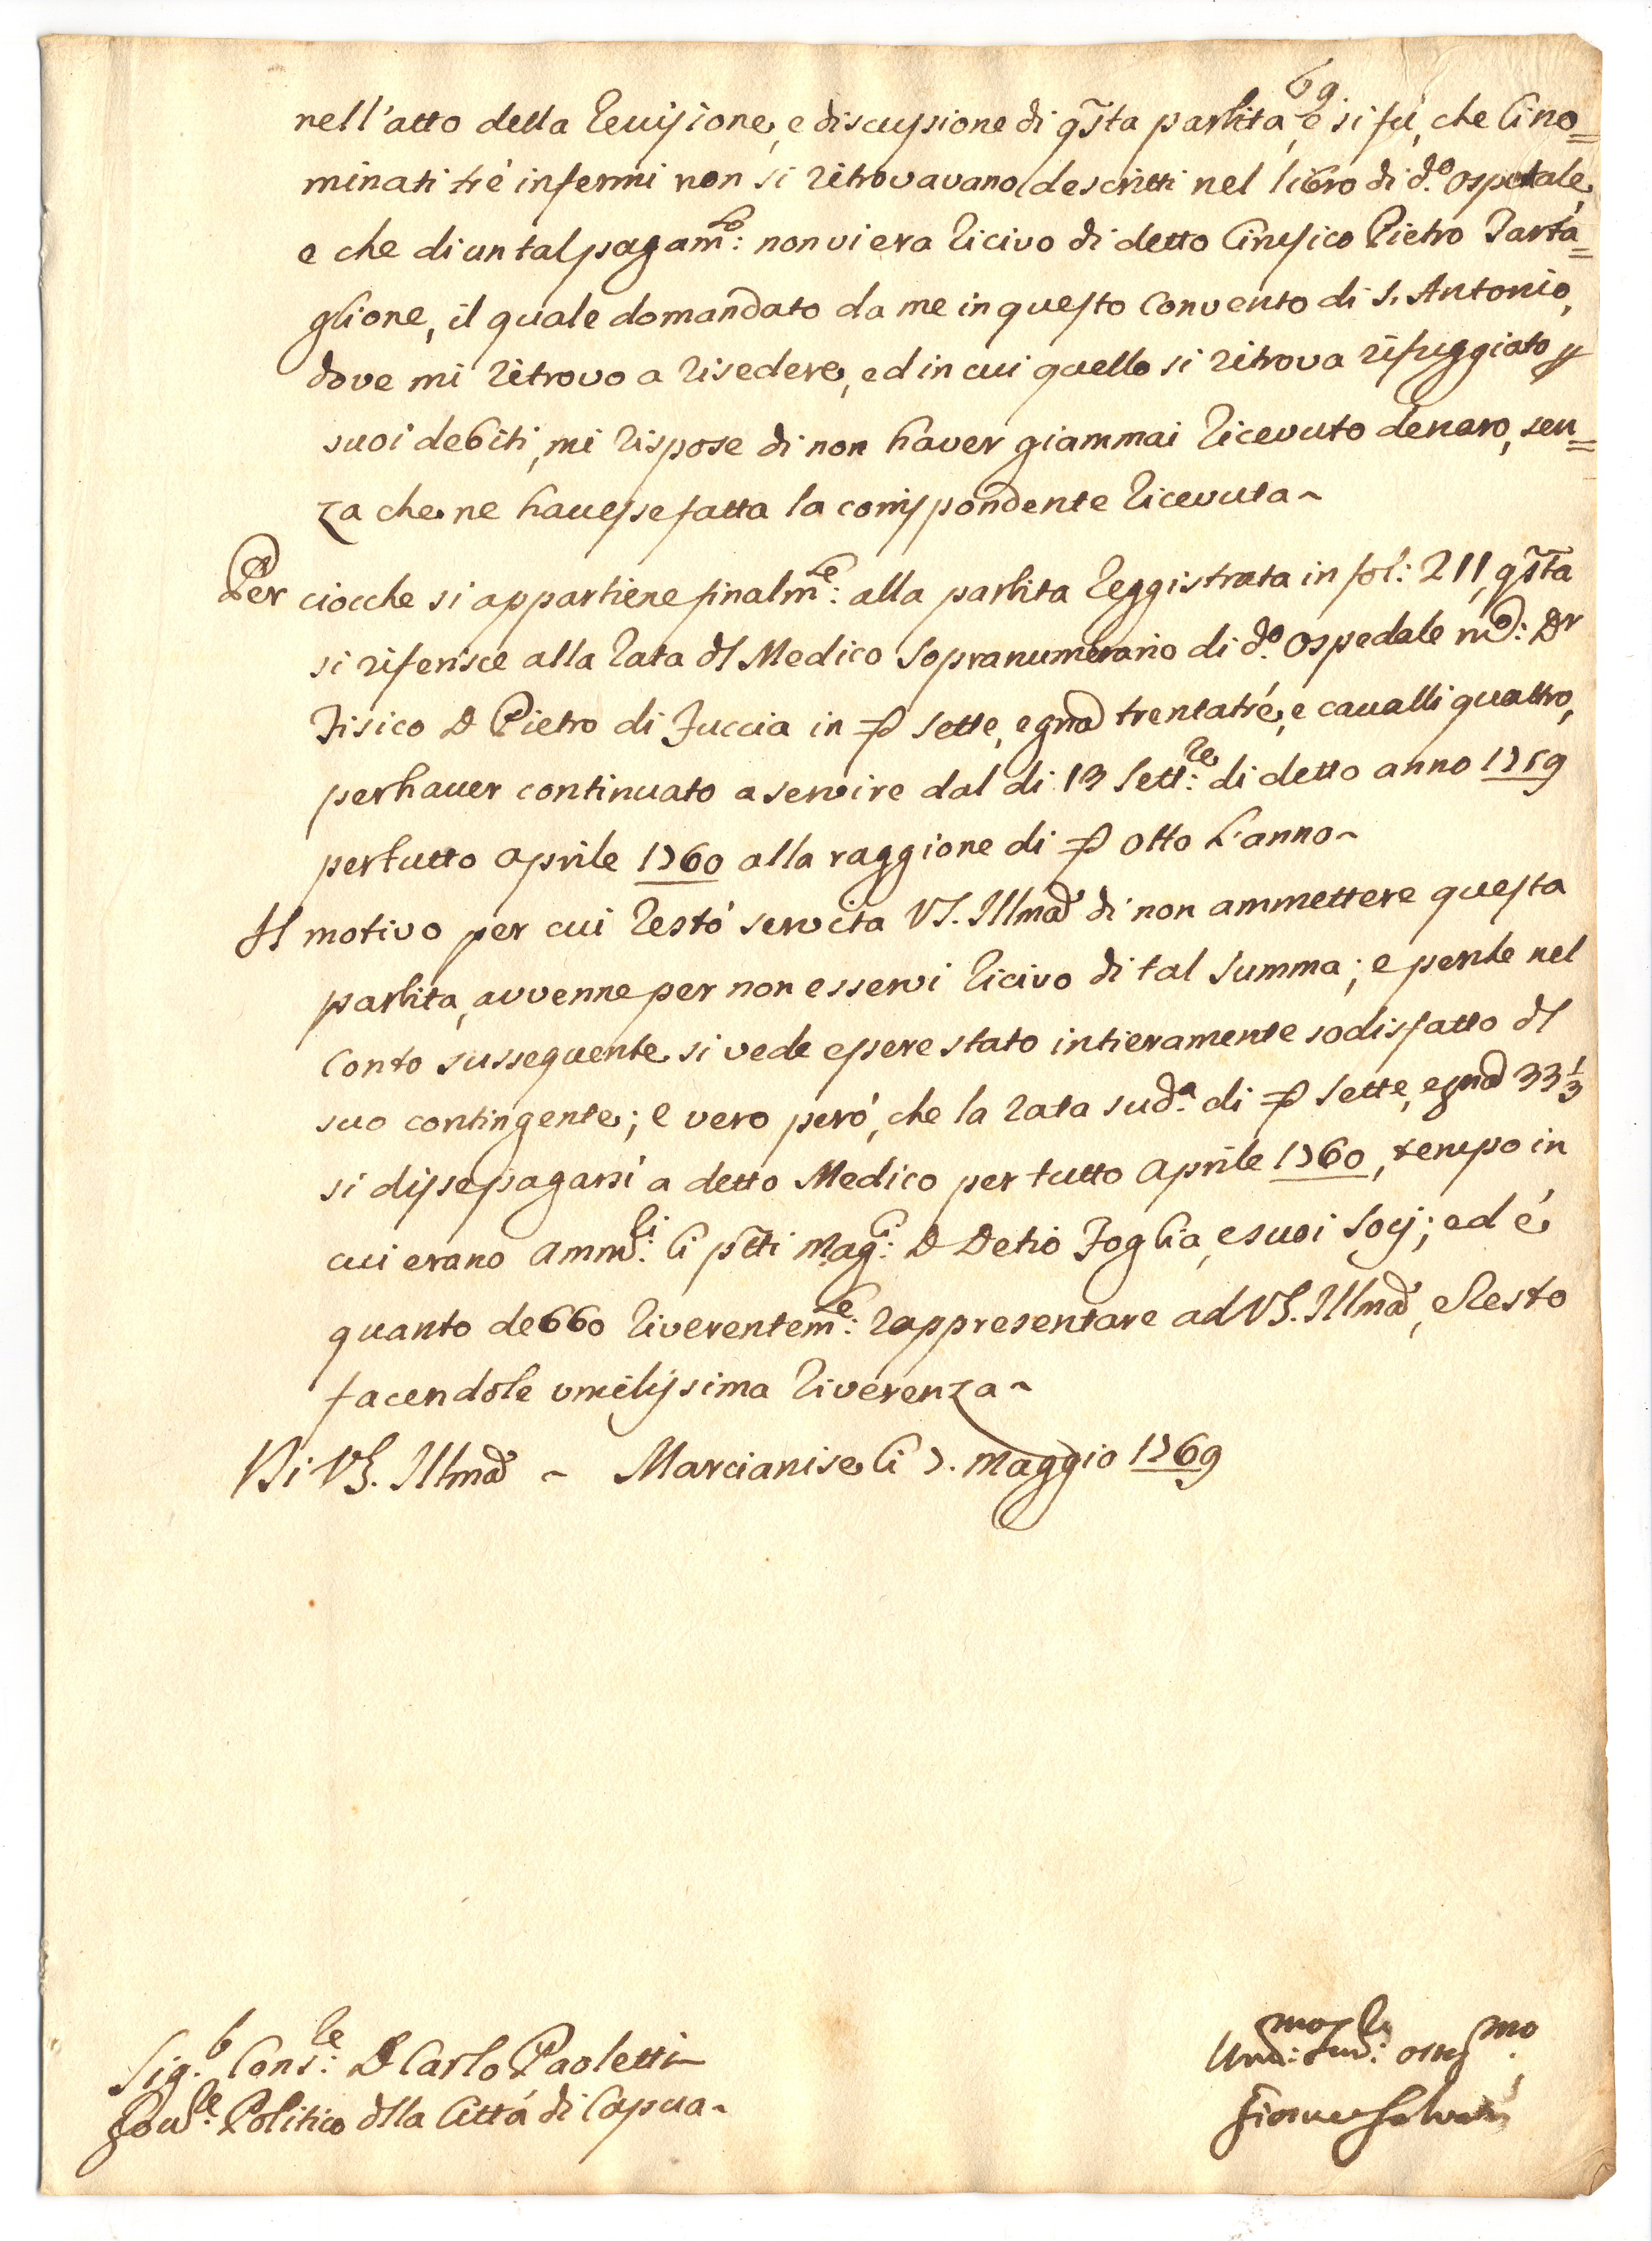 69
nell'atto della Revisione, e discussione di q̃sta partita, e si fù, che li no=
minati trè infermi non si ritrovavano descritti nel libro di d.º Ospedale,
e che di un tal pagam.to: non vi era Ricivo di detto Cirusico Pietro Tarta=
glione, il quale domandato da me in questo Convento di S. Antonio,
dove mi ritrovo a risedere, ed in cui quello si ritrova rifuggiato p
suoi debiti, mi rispose di non haver giammai ricevuto denaro, sen=
za che ne havesse fatta la corrispondente ricevuta~
Per ciocche si appartiene finalm.te: alla partita reggistrata in fol: 211, q̃sta
si riferisce alla rata dl Medico Sopranumerario di d.º Ospedale md: Dr
Fisico D Pietro di Fuccia in D sette, e gna trentatré, e cavalli quattro,
per haver continuato a servire dal di 13 Sett.re: di detto anno 1759
per tutto Aprile 1760 alla raggione di D otto l'anno~
Il motivo per cui restó servita VS. Illma di non ammettere questa
partita, avvenne per non esservi ricivo di tal summa; e perche nel
Conto susseguente si vede essere stato intieramente sodisfatto dl
suo contingente; è vero peró, che la rata sud.a di D sette, e gna 33⅓
si disse pagarsi a detto Medico per tutto Aprile 1760, tempo in
cui erano Amm.ri: li p̃tti Mag.ci: D Detio Foglia, e suoi Socij; ed è
quanto debbo riverentem.te: rappresentare ad VS. Illma, e resto
facendole umilissima riverenza~
Di VS. Illma ~ Marcianise li 7. Maggio 1769
Sig.r Cons.re: D Carlo Paoletti~
Gov.re Politico dlla Cittá di Capua~